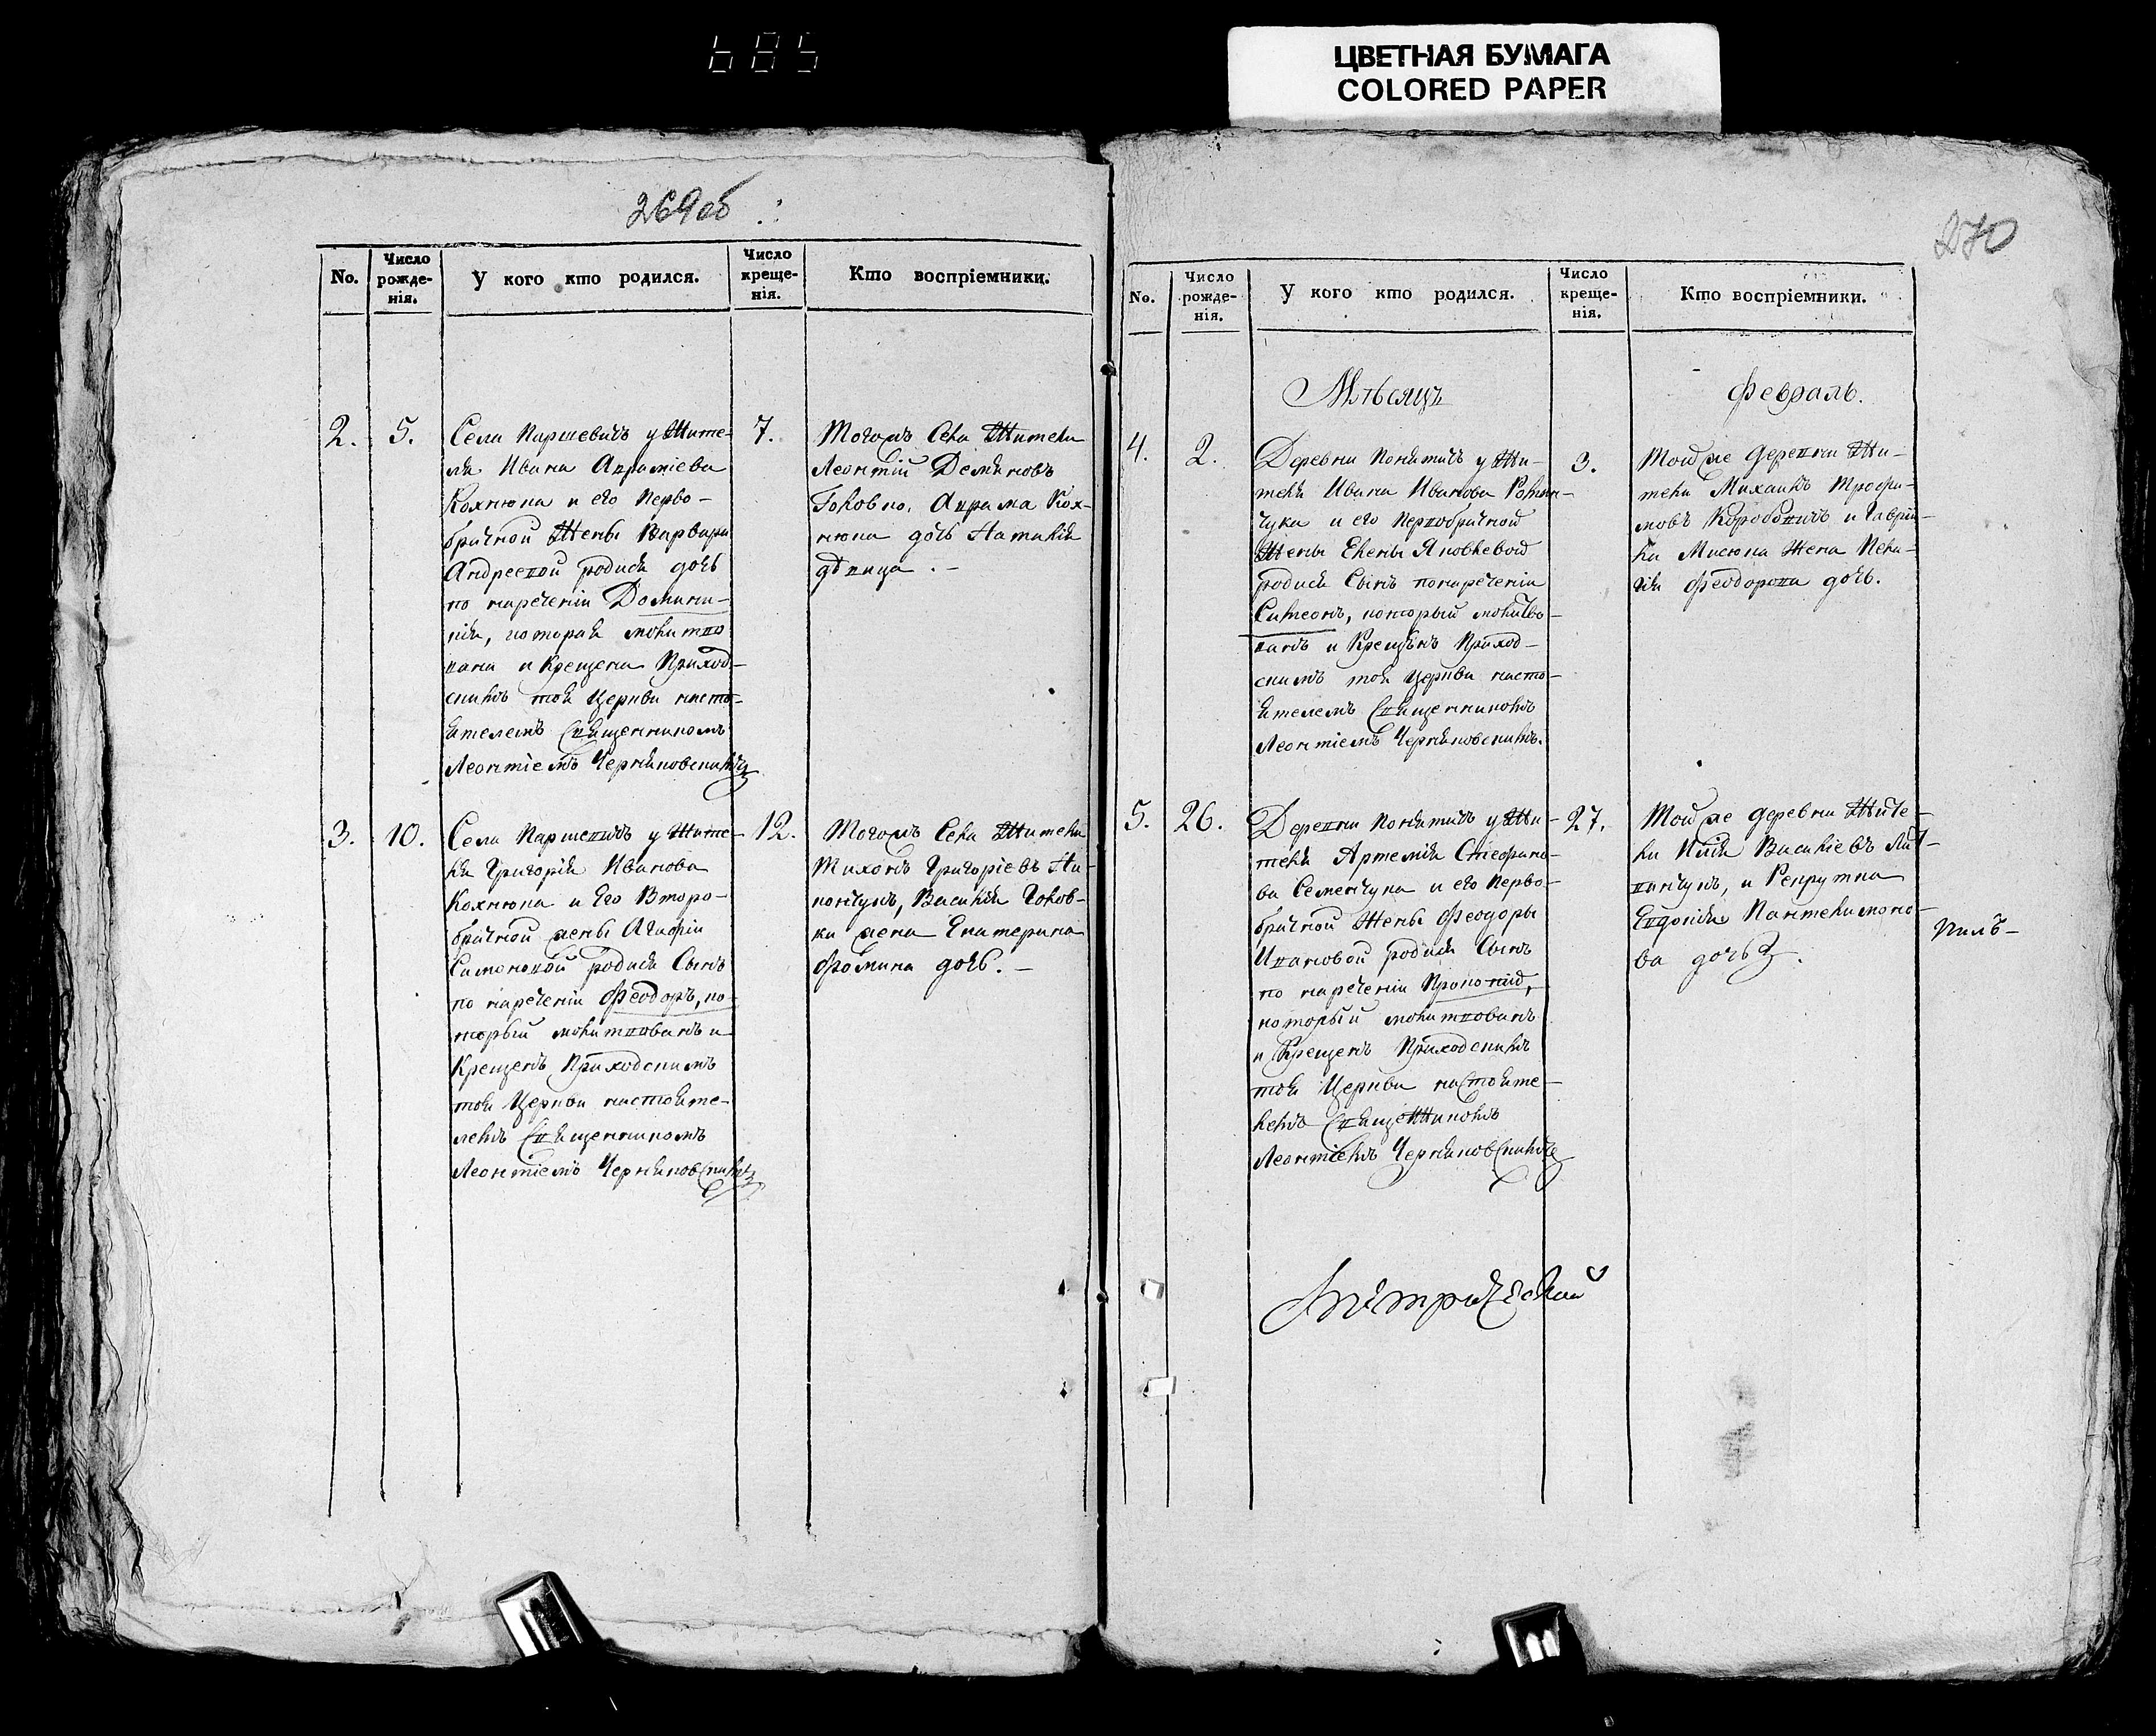 685
ЦВЕТНАЯ БУМАГА
COLORED PAPER
269об
No.
Число рожде-нія.
У кого кто родился.
Число креще-нія.
Кто воспріемники.
2.
5.
Села Паршевичъ у Жите-
ля Ивана Аврамієва
Кохнюка и его перво-
брачной Жены Варвари
Андреевой родися дочь
по нареченіи Домини-
кія, которая молитво
вана и Крещена Приход-
скимъ той Церкви насто-
ятелемъ Священникомъ
Леонтіемъ Черняковскимъ
7.
Тогожъ Села Жители
Леонтій Демяновъ
Головко, Аврама Кох-
нюка дочь Наталія
дѣвица. –
3.
10.
Села Паршевичъ у Жите-
ля Григорія Иванова
Кохнюка и Его Второ-
брачной жены Агафіи
Симоновой родися Сынъ
по нареченіи Феодоръ, ко-
торый молитвованъ и
Крещенъ Приходскимъ
той Церкви настояте-
лемъ Священникомъ
Леонтіемъ Черняковскимъ
12.
Тогожъ Села Жители
Тихонъ Григоріевъ
Василія Голов-
ки жена Екатерина
Фомина дочь. –
270
No.
Число рожде-нія.
У кого кто родился.
Число креще-нія.
Кто воспріемники.
Мѣсяцъ
Февраль.
4.
2.
Деревни у Жи-
теля Ивана Иванова
чука и его Первобрачной
Жены Елены Яковлевой
родися Сынъ понареченіи
Симеонъ, который молитво-
ванъ и Крещѣнъ Приход-
скимъ той Церкви насто-
ятелемъ Священникомъ
Леонтіемъ Черняковскимъ.
3.
Тойже деревни Жи-
тели Михаилъ Трофи-
мовъ Коробовичъ и Гаврій-
ла Мисюка Жена Пела-
гія Феодорова дочь.
5.
26.
Деревни у Жи-
теля Артемія Стефано-
ва Семенчука и его перво-
брачной Жены Феодоры
Ивановой родися Сынъ
по нареченіи Прокопій,
который молитвованъ
и Крещенъ Приходскимъ
той Церкви настояте-
лемъ Священникомъ
Леонтіемъ Черняковскимъ
27.
Тойже деревни Жите-
ли Илія Василіевъ
и Рекрутка
Евдокія Пантелимоно-
ва дочь.